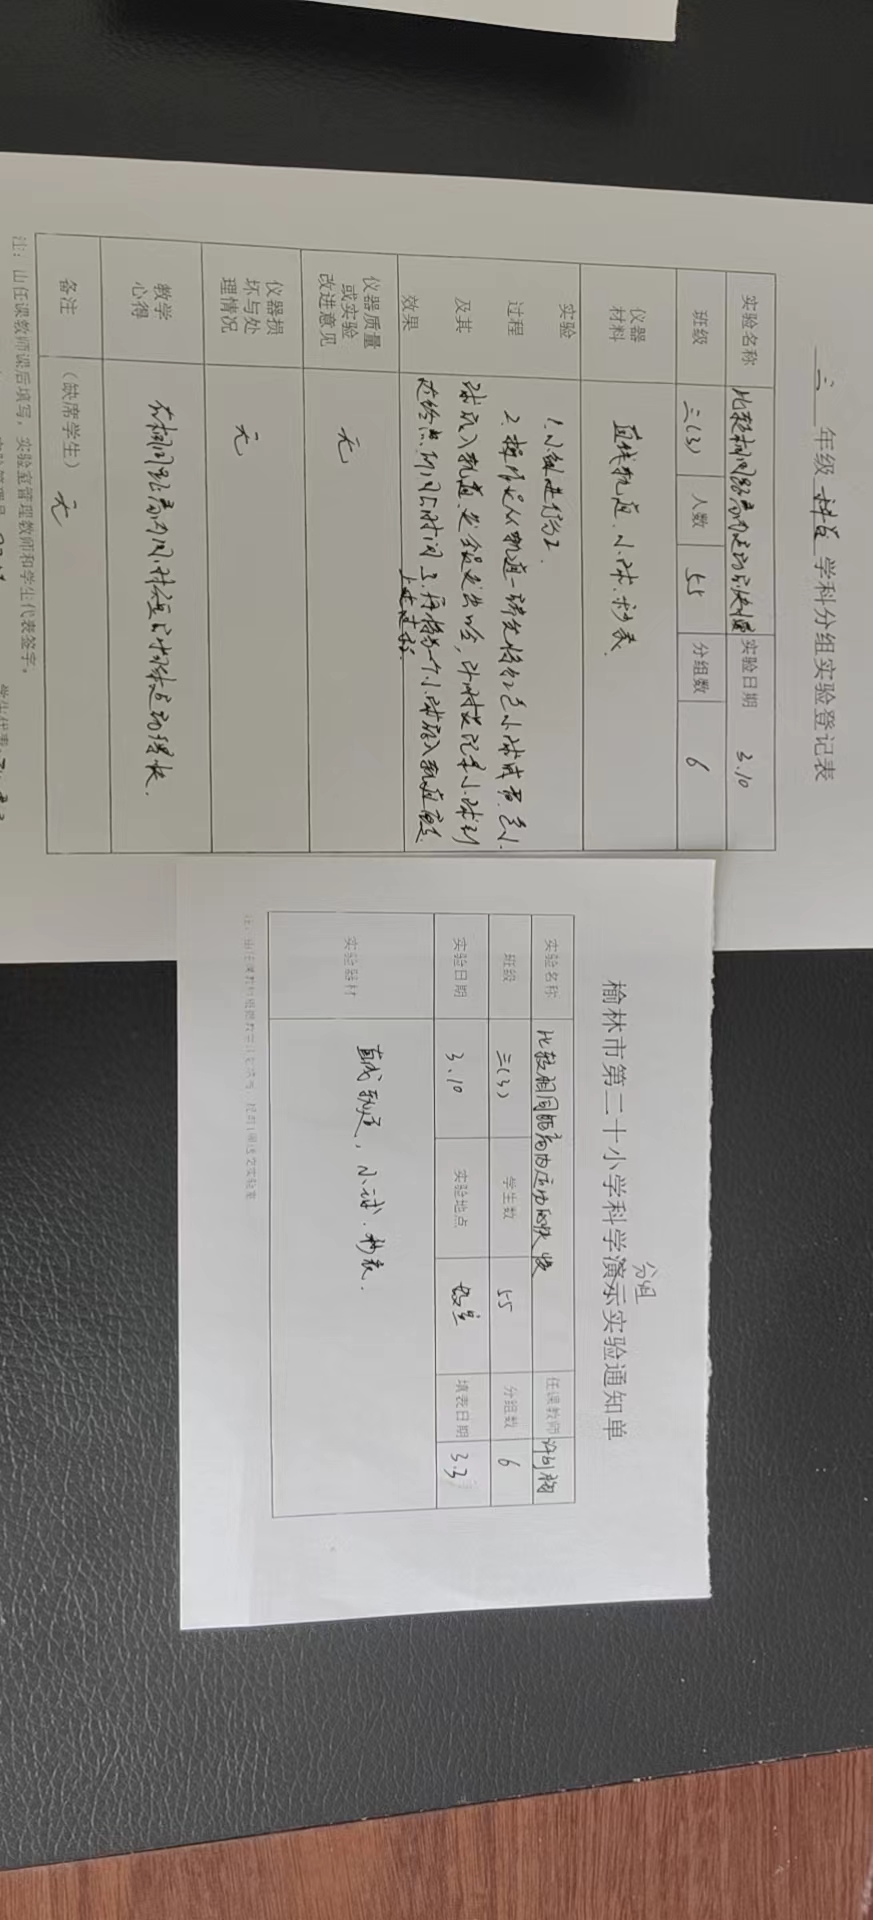 三 年级 科学 学科分组实验登记表
实验名称 比较相同距离内运动的快慢 实验日期 3.10
班级 三(3) 人数 55 分组数 6
仪器材料 直线轨道、小球、秒表.
实验过程及其效果
1.小组进行分工.
2.操作员从轨道一端先将红色小球或蓝色小
球放入轨道,发令员发出口令,计时员记录小球到
达终点所用的时间 3.再将另一个小球放入轨道重复
上述过程.
仪器质量或实验改进意见 无
仪器损坏与处理情况 无
教学心得 在相同距离内用时短的物体运动得快.
备注 (缺席学生) 无
注:由任课教师课后填写,实验室管理教师和学生代表签字。
榆林市第二十小学科学演示实验通知单
分组
实验名称 比较相同距离内运动的快慢 任课教师
班级 三(3) 学生数 55 分组数 6
实验日期 3.10 实验地点 填表日期 3.3
实验器材 直线轨道,小球.秒表.